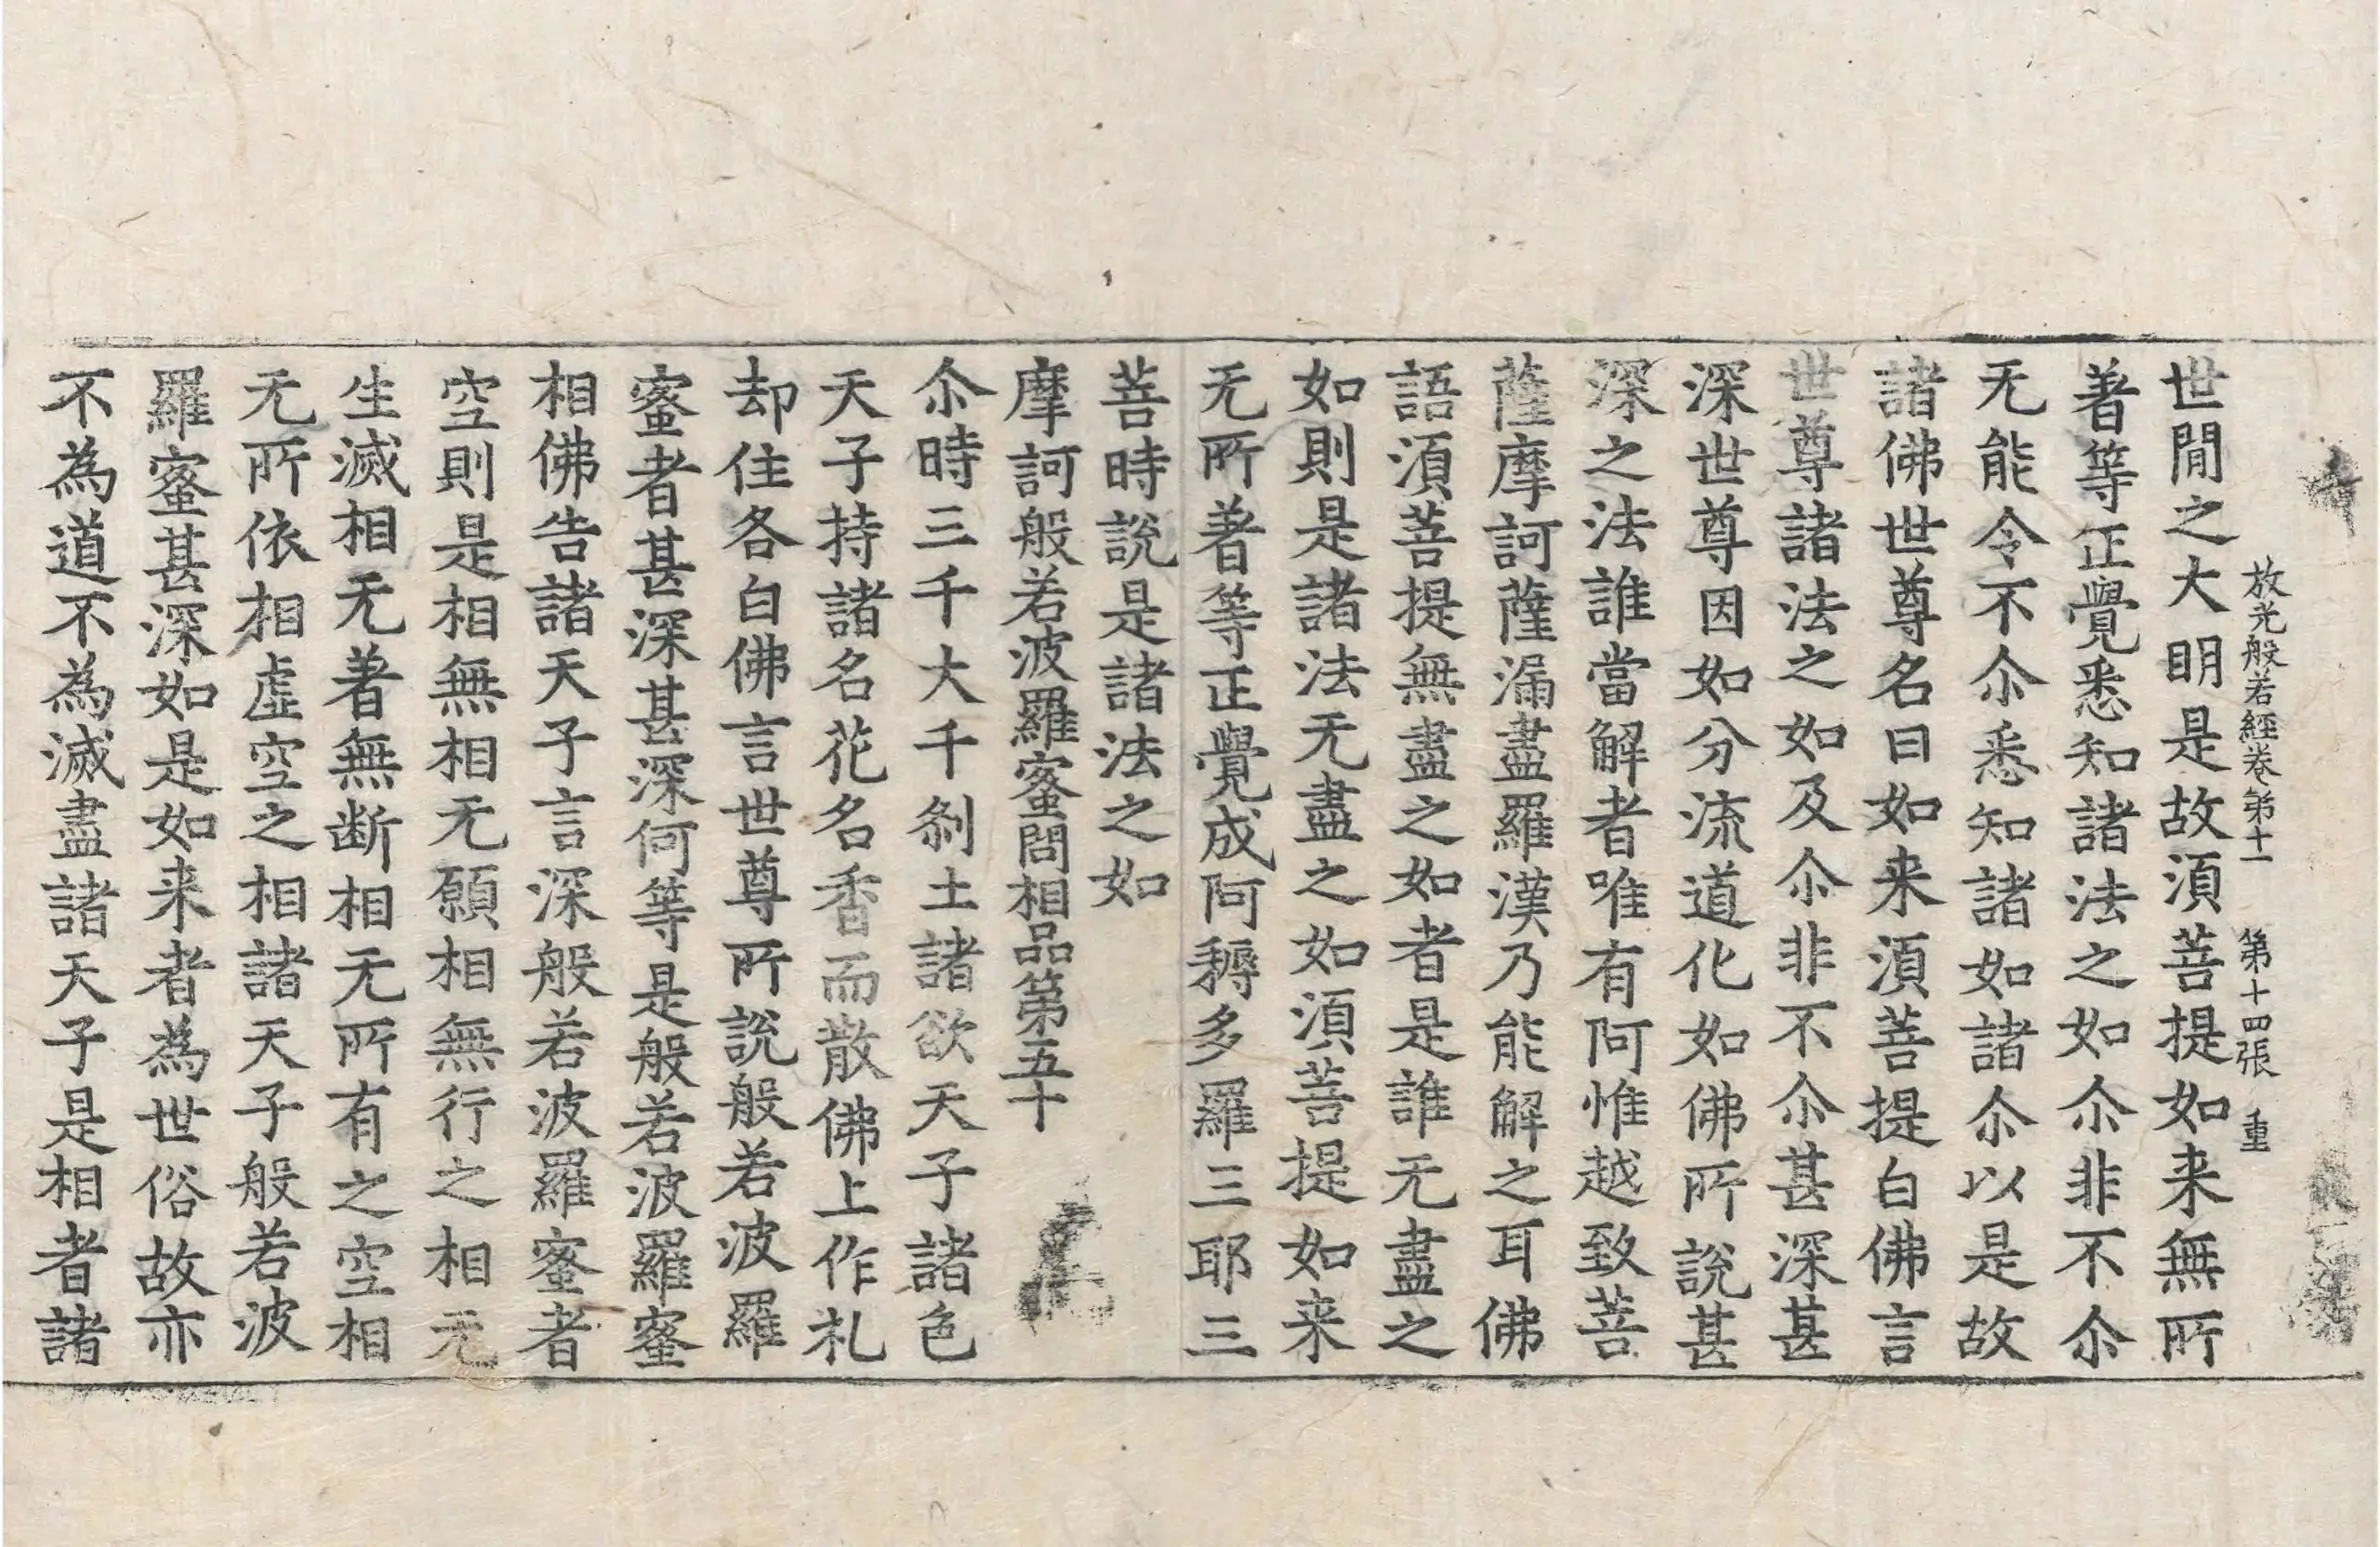 放光般若經卷第十一　第十四張　重
世閒之大明是故湏菩提如来無所
著等正覺悉知諸法之如尒非不尒
无能令不尒悉知諸如諸尒以是故
諸佛世尊名曰如来湏菩提白佛言
世尊諸法之如及尒非不尒甚深甚
深世尊因如分流道化如佛所說甚
深之法誰當解者唯有阿惟越致菩
薩摩訶薩漏盡羅漢乃能解之耳佛
語湏菩提無盡之如者是誰无盡之
如則是諸法无盡之如湏菩提如来
无所著等正覺成阿耨多羅三耶三
菩時說是諸法之如
摩訶般若波羅蜜問相品第五十
尒時三千大千刹土諸欲天子諸色
天子持諸名花名香而散佛上作礼
却住各白佛言世尊所說般若波羅
蜜者甚深甚深何等是般若波羅蜜
相佛告諸天子言深般若波羅蜜者
空則是相無相无願相無行之相无
生滅相无著無断相无所有之空相
无所依相虚空之相諸天子般若波
羅蜜甚深如是如来者為世俗故亦
不為道不為滅盡諸天子是相者諸